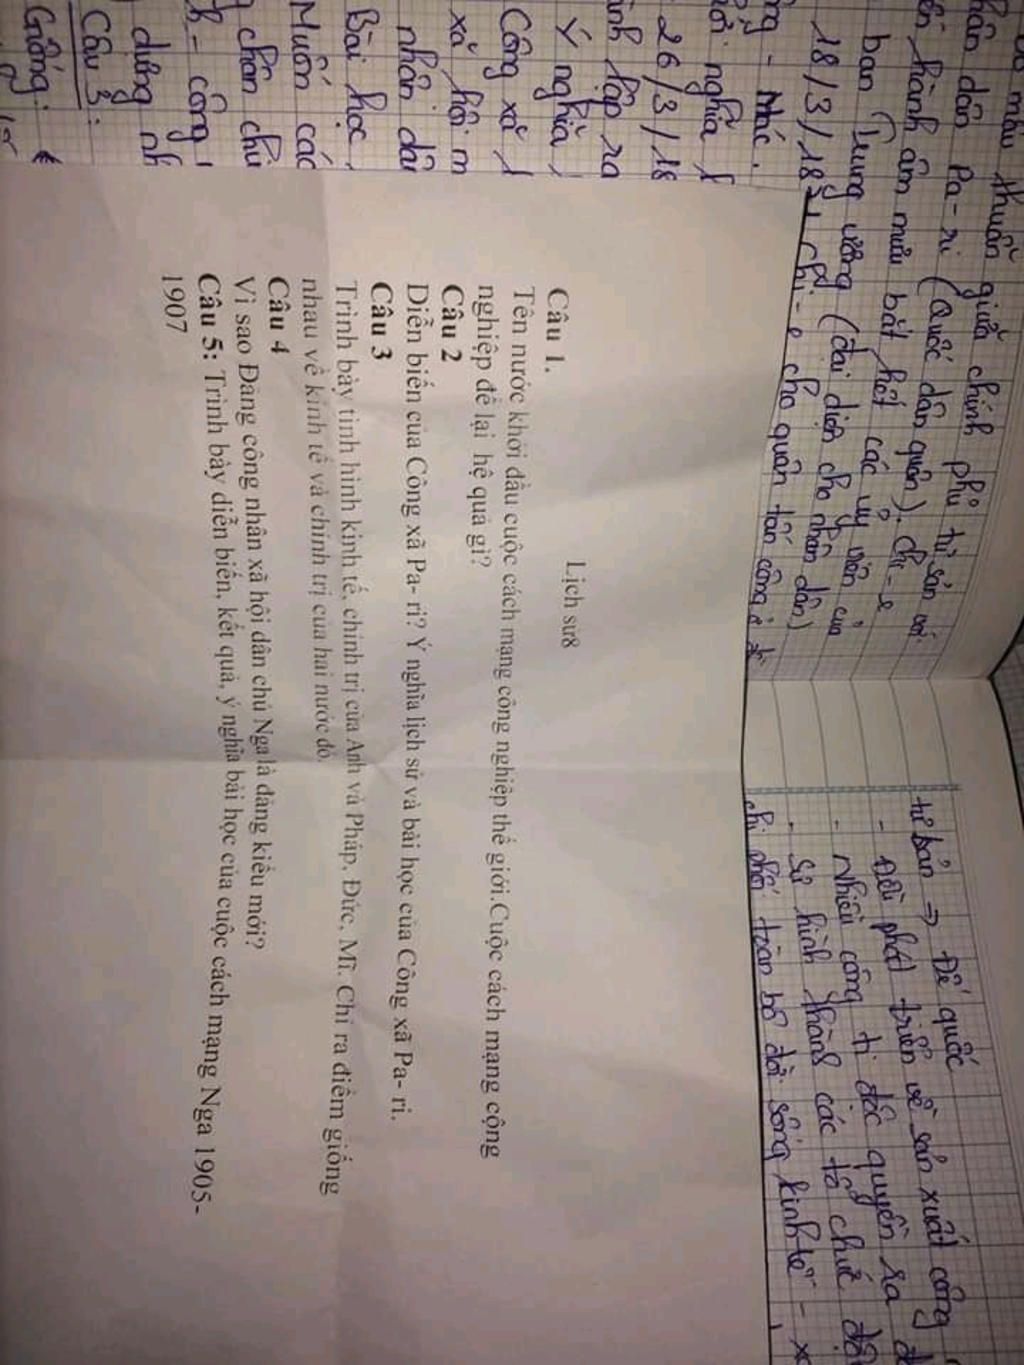 mâu thuẫn giữa chính phủ tư sản với
nhân dân Pa-ri (Quốc dân quân). Chi-e
hành âm mưu bắt hết các uỷ viên của
ban Trung ương (đại diện cho nhân dân)
18/3/18 Chi-e cho quân tấn công
- Nhắc.
nghĩa
26/3/18
lập ra
Ý nghĩa
Công xã
xã hội m
nhân dân
Bài học
Muốn các
chân chủ
- công
dựng nh
Câu 3:
Giống:
tư bản => Đế quốc
- Đều phát triển về sản xuất công
- Nhiều công ti độc quyền ra đ
- Sự hình thành các tổ chức độ
chi phối toàn bộ đời sống kinh tế - x
Lịch sử8
Câu 1.
Tên nước khởi đầu cuộc cách mạng công nghiệp thế giới.Cuộc cách mạng công
nghiệp để lại hệ quả gì?
Câu 2
Diễn biến của Công xã Pa- ri? Ý nghĩa lịch sử và bài học của Công xã Pa- ri.
Câu 3
Trình bày tình hình kinh tế, chính trị của Anh và Pháp, Đức, Mĩ. Chỉ ra điểm giống
nhau về kinh tế và chính trị của hai nước đó.
Câu 4
Vì sao Đảng công nhân xã hội dân chủ Nga là đảng kiểu mới?
Câu 5: Trình bày diễn biến, kết quả, ý nghĩa bài học của cuộc cách mạng Nga 1905-
1907